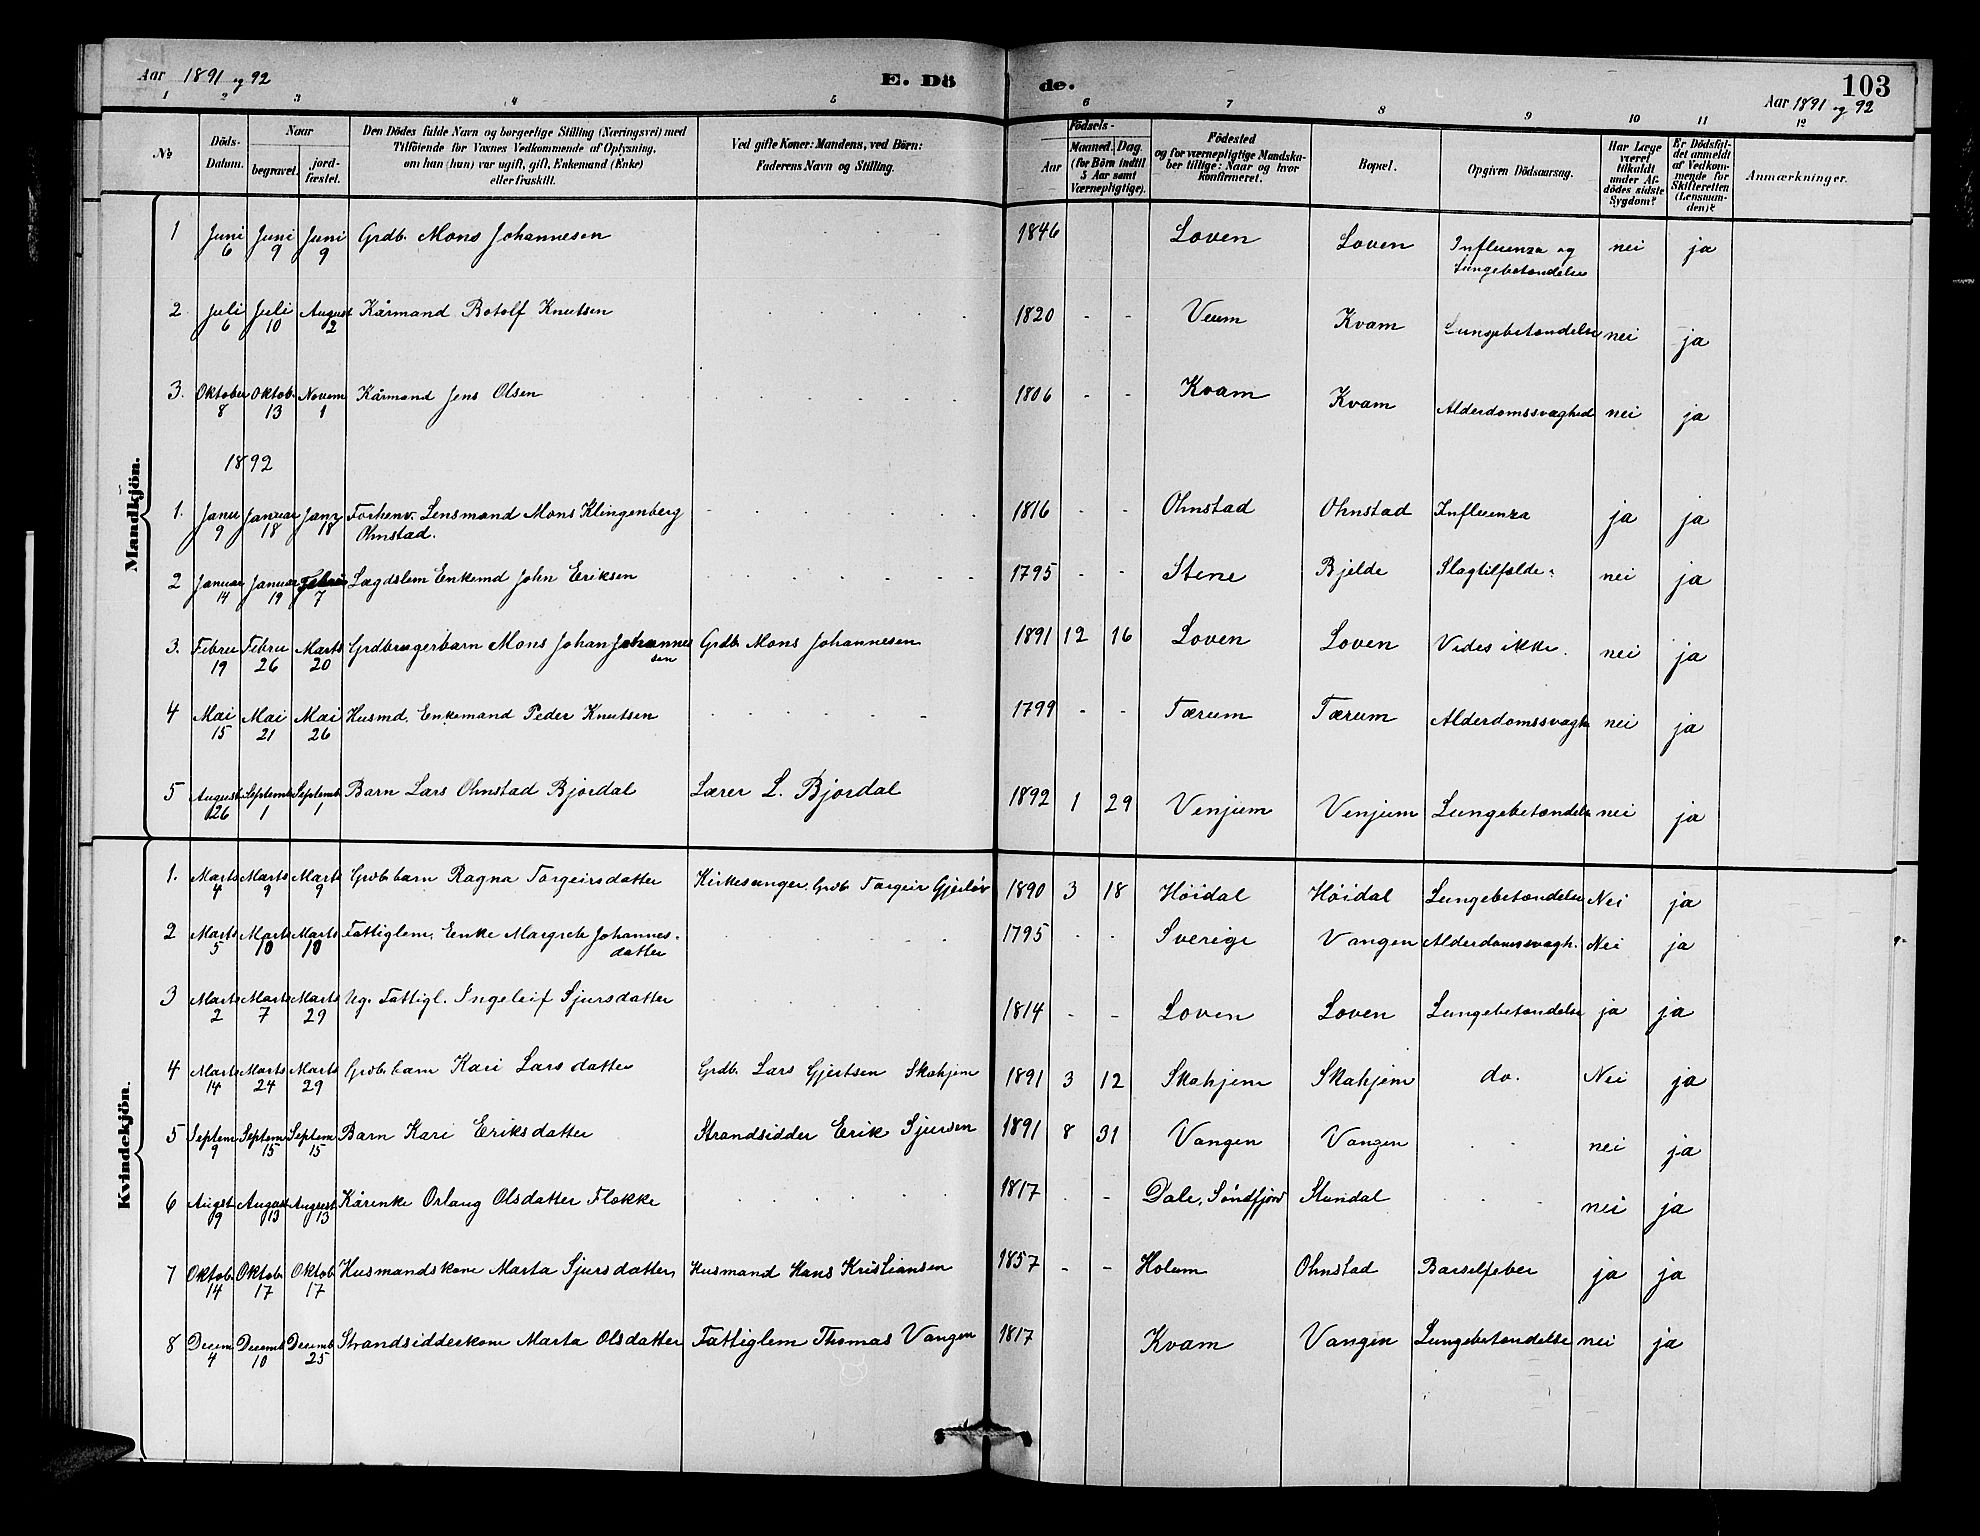 Aar 1891 og 92 E. Dö de. 103
Aar 1891 og 92
1 2 3 4 5 6 7 8 9 10 11 12
No Döds-Datum. Naar begravet. jordfæstet. Den Dödes fulde Navn og borgerlige Stilling (Næringsvei) med Tilföiende for Voxnes Vedkommende af Oplysning, om han (hun) var ugift, gift, Enkemand (Enke) eller fraskilt. Ved gifte Koner: Mandens, ved Börn: Faderens Navn og Stilling. Födsels- Aar Maaned. Dag. (for Börn indtil 5 Aar samt Værnepligtige). Födested og for værnepligtige Mandskaber tillige: Naar og hvor konfirmeret. Bopæl. Opgiven Dödsaarsag. Har Læge været tilkaldt under Afdödes sidste Sygdom? Er Dödsfaldet anmeldt af Vedkommende for Skifteretten (Lensmanden)? Anmærkninger.
Mandkjön.
1 Juni 6 Juni 9 Juni 9 Grdb. Mons Johannesen 1846 Loven Loven Influenza og Lungebetændelse nei ja
2 Juli 6 Juli 10 August 2 Kårmand Botolf Knutsen 1820 - - Veum Kvam Lungebetændelse nei ja
3. Oktober 8 Oktob. 13 Novem 1 Kårmand Jens Olsen 1806 - - Kvam Kvam Alderdomssvaghed nei ja
1892
1. Janu 9 Januar 18 Janr 18 Forhenv. Lensmand Mons Klingenberg Ohnstad. 1816 - - Ohnstad Ohnstad Influenza ja ja
2 Januar 14 Januar 19 Febru 7 Lægdslem Enkemd John Eriksen 1795 - - Stene Bjelde Slagtilfælde. nei ja
3. Febru 19 Febru 26 Marts 20 Grdbrugerbarn Mons Johan Johannessen Grdb. Mons Johannesen 1891 12 16 Loven Loven Vides ikke. nei ja
4 Mai 15 Mai 21 Mai 26 Husmd. Enkemand Peder Knutsen 1799 - - Tærum Tærum Alderdomssvagh nei ja
5 August 26 Septemb 1 Septemb 1 Barn Lars Ohnstad Bjordal Lærer L. Bjordal 1892 1 29 Venjum Venjum Lungebetændelse nei ja
Kvindekjön.
1. Marts 4 Marts 9 Marts 9 Grdb.barn Ragna Torgeirsdatter Kirkesanger, Grdb. Torgeir 1890 3 18 Höidal Höidal Lungebetændelse Nei ja
2 Marts 5 Marts 10 Marts 10 Fattiglem, Enke Margrete Johannesdatter 1795 - - Sverige Vangen Alderdomssvagh. Nei ja
3 Marts 2 Marts 7 Marts 29 Ug. Fattigl. Ingeleif Sjursdatter 1814 - - Loven Loven Lungebetændelse ja ja
4 Marts 14 Marts 24 Marts 29 Grdb.barn Kari Larsdatter Grdb. Lars Gjertsen Skahjem 1891 3 12 Skahjem Skahjem do. Nei ja
5 Septem 9 Septem 15 Septem 15 Barn Kari Eriksdatter Strandsidder Erik Sjursen 1891 8 31 Vangen Vangen nei ja
6 Augst 9 August 13 August 13 Kårenke Orlaug Olsdatter Flokke 1817 - - Dale, Söndfjörd Stundal nei ja
7 Oktob. 14 Oktob. 17 Oktob 17 Husmandskone Marta Sjursdatter Husmand Hans Kristiansen 1857 - - Holum Ohnstad Barselfeber ja ja
8 Decem 4 Decemb 10 Decemb 25 Strandsidderkone Marta Olsdatter Fattiglem Thomas Vangen 1817 Kvam Vangen Lungebetændelse nei ja